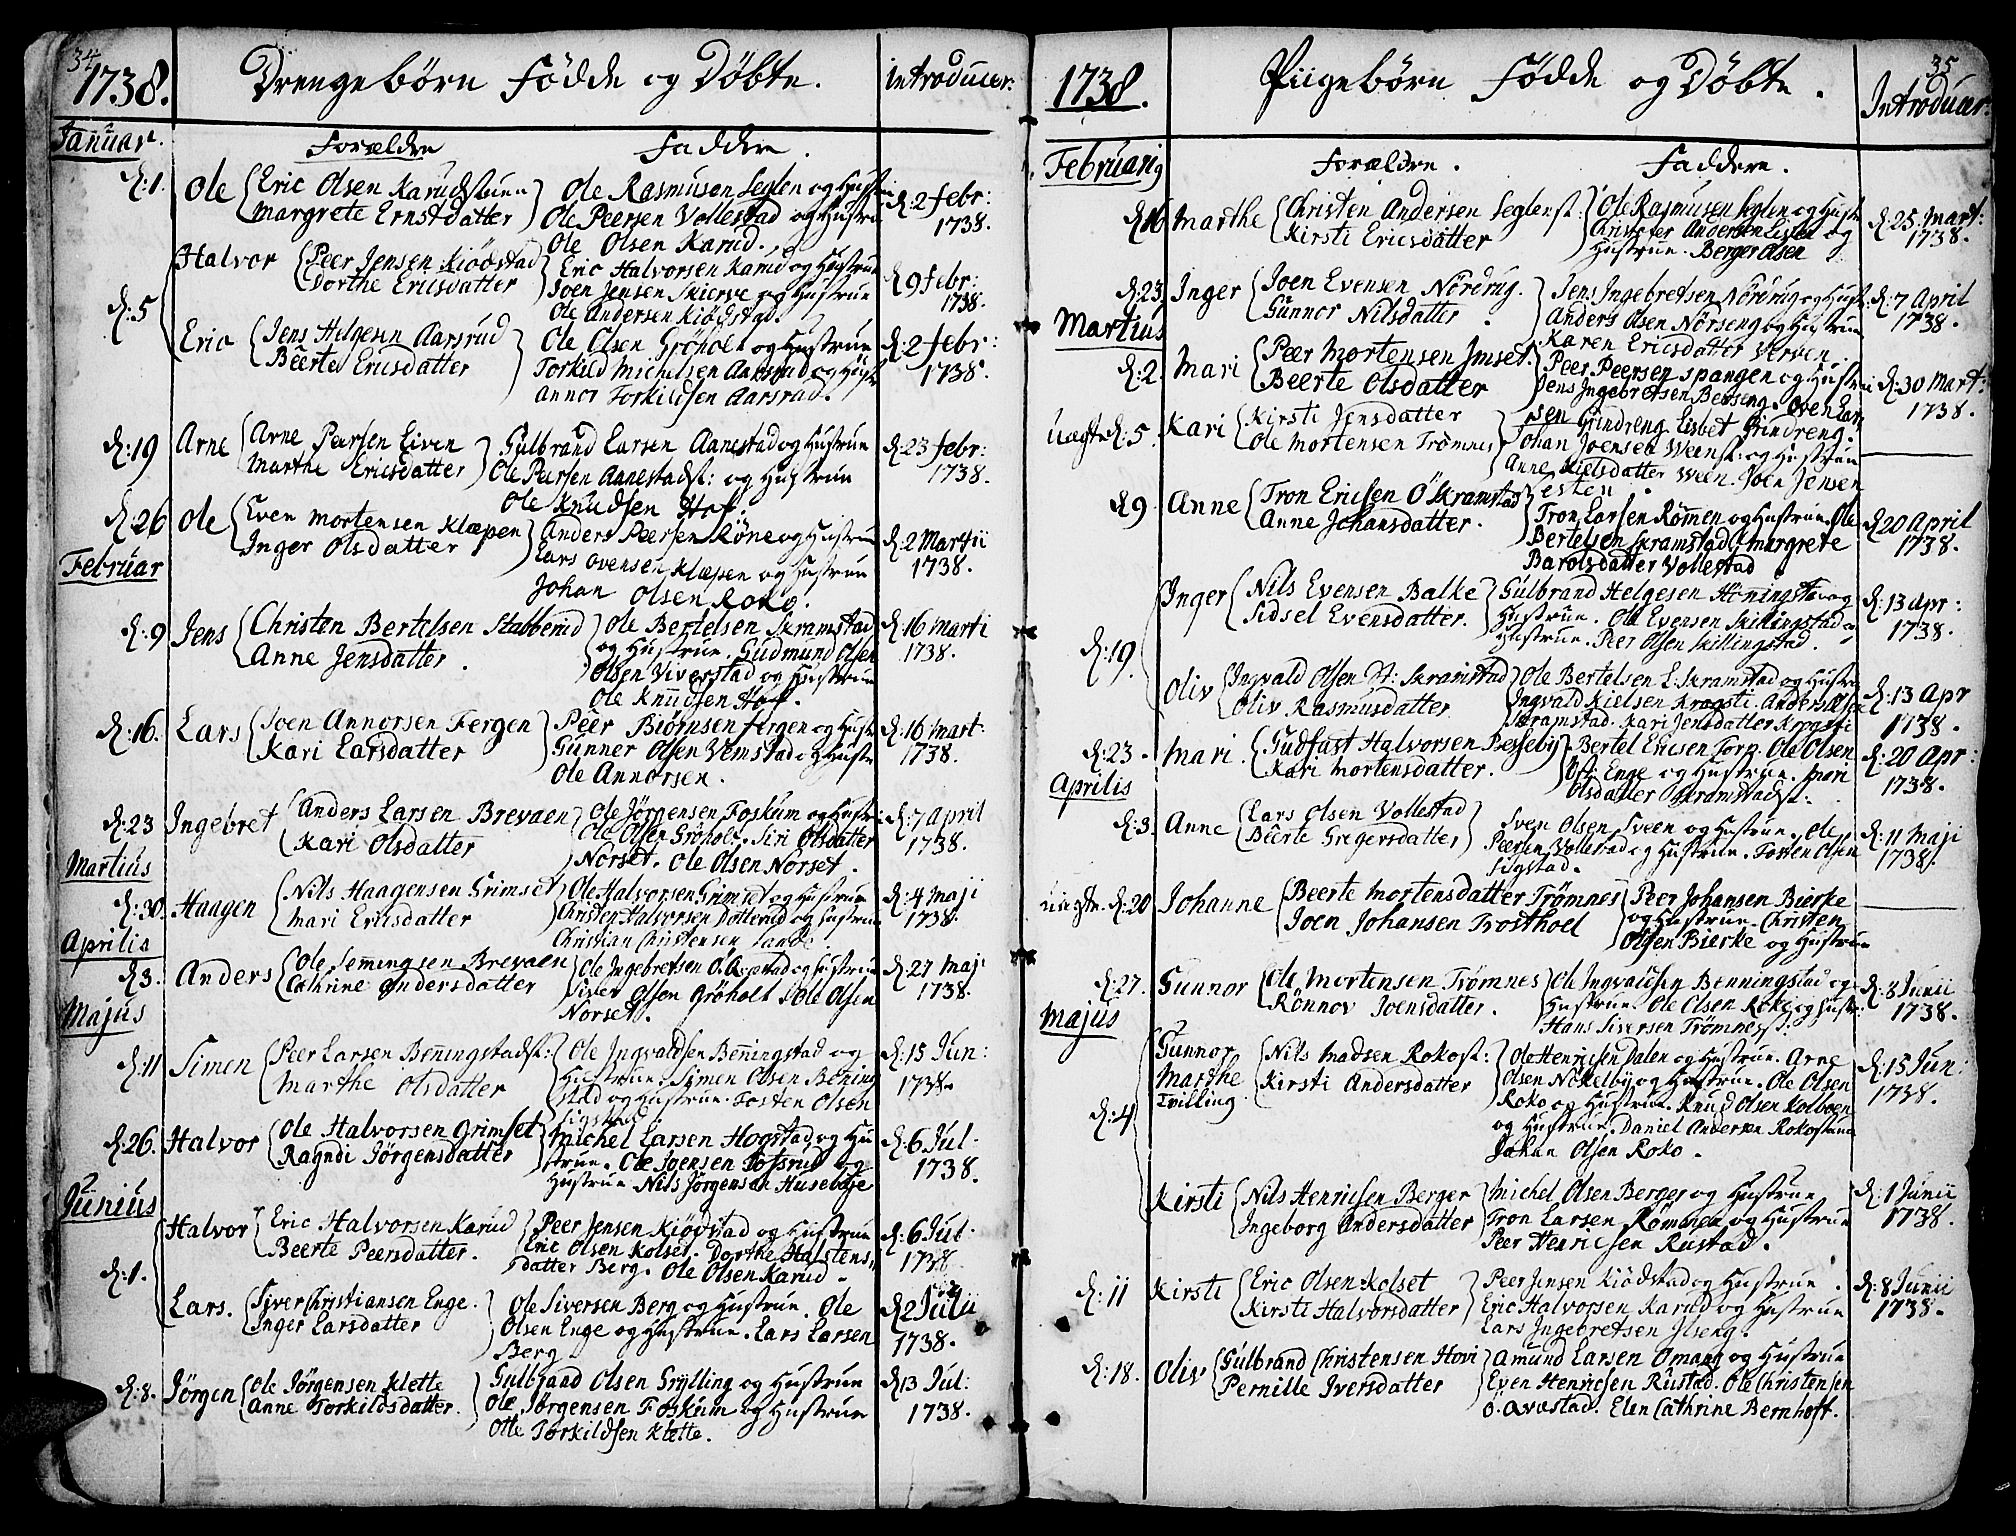 34
1738. Drengebørn Fødde og Døbte. introducer:
Januar. Forældre Faddere.
d:1. Ole Eric Olsen Karudstuen Ole Rasmusen Seglen og Hustru d:2 febr:
Margrete Ernstdatter Ole Peersen Vollestad og Hustru 1738.
Ole Olsen Karud.
Halvor Peer Jensen Kiödstad Eric Halvorsen Karud og Hustrue d:9 febr:
d:5 Dorthe Ericsdatter Joen Jensen Skierve og Hustrue 1738.
Ole Andersen Kiödstad.
Eric Jens Helgesen Aarsrud Ole Olsen Gröholt og Hustrue d:2 febr:
Beerte Ericsdatter Torkild Michelsen Aarsrud og 1738.
Annor Torkildsen Aarsrud.
d:19 Arne Arne Peersen Eiven Gulbrand Larsen Aanestad og Hustrue d:23 febr:
Marthe Ericsdatter Ole Peersen Annestadst: og Hustrue 1738.
Ole Knudsen Hof.
d:26 Ole Even Mortensen Klæpen Anders Peersen Köne og Hustrue d:2 Martii
Inger Olsdatter Lars Ovensen Klæpen og Hustrue 1738.
Februar Johan Olsen Roko.
d:9 Jens Christen Bertelsen Stabberud Ole Bertelsen Skramstad d:16 Marti
Anne Jensdatter. og Hustrue. Gudmund Olsen 1738.
Olsen Viverstad og Hustrue
Ole Knudsen Hof.
d:16. Lars Joen Annorsen Fergen Peer Biörnsen fergen og Hustr d:16 Mart:
Kari Larsdatter Gunner Olsen Vemstad og Hustr 1738.
Ole Annorsen.
d:23 Ingebret Anders Larsen Brevaen Ole Jörgensen Foskum og Hustr d:7 April
Kari Olsdatter Ole Olsen Gröholt. Siri Olsdatter 1738.
Martius Norset. Ole Olsen Norset.
d:30. Haagen Nils Haagensen Grimset Ole Halvorsen Grimset og Hustrue d:4 Maji
Mari Ericsdatter Christen Halvorsen Dotterud og Hustrue 1738.
Aprilis Christian Christensen Lande.
d:3. Anders Ole Semmingsen Brevaen Ole Ingebretsen og Hustrue d:27 Maji
Cathrine Andersdatter Siver Olsen Gröholt Ole Olsen 1738.
Majus Norset.
d:11 Simen Peer Larsen Benningstadst: Ole Ingvaldsen Benningstad og d:15 Jun:
Marthe Olsdatter Hustrue. Simen Olsen Bening 1738.
stad og Hustrue. Tosten Olsen
Sigstad.
d:26. Halvor Ole Halvorsen Grimset Michel Larsen Hogstad og Hu d:6 Jul.
Ragndi Jörgensdatter strue. Ole Joensen Tossrud og 1738.
Junius Hustrue. Nils Jörgensen Huseböje
Halvor Eric Halvorsen Karud Peer Jensen Kiödstad og Hustrue d:6 Jul.
Beerte Peersdatter. Eric Olsen Kolset. Dorthe Halstens 1738.
d:1. datter Berg. Ole Olsen Karud.
Lars. Siver Christiansen Enge. Ole Siversen Berg og Hustrue. Ole d:2 Julii
Inger Larsdatter Olsen Enge og Hustrue. Lars Larsen 1738.
Berg
d:8. Jörgen Ole Jörgensen Klette Gulbrand Olsen Grylling og Hustrue d:13 Jul:
Anne Torkildsdatter. Ole Jörgensen Foskum og Hustrue 1738.
Otte Torkildsen Klette.
35
1738. Piigebörn Födde og Döbte. Introducer:
Februarij Forældre. Faddere.
d:16 Marthe Christen Andersen Seglenst: Ole Rasmusen Seglen og Hustr d:25 Mart:
Kirsti Ericsdatter Christofer Andersen og 1738.
Hustrue. Berger Olsen
d:23. Inger Joen Evensen Nördrug. Jens Ingebretsen Nördrug og Hust d:7 April
Gunnor Nilsdatter. Anders Olsen Nörseng og Hustrue 1738.
Martius Karen Ericsdatter Verven.
d:2. Mari Peer Mortensen Imset. Peer Peersen Spangen og Hustru d:30 Mart:
Beerte Olsdatter Jens Ingebretsen Berseng. Oven Lar 1738.
uægte d:5. Kari Kirsti Jensdatter sen Grindreng. Lisbet Grindreng.
Ole Mortensen Trömnes Johan Joensen Weenst: og Hustrue
Anne Kielsdatter Ween. Joen Jensen
d:9. Anne Tron Ericsen Ö Skramstad Tron Larsen Römen og Hustrue. Ole d:20 April
Anne Johansdatter. Bertelsen Skramstad. Margrete 1738.
Barolsdatter Vollestad
Inger Nils Evensen Balke Gulbrand Helgesen Honningstad og d:13 Apr:
Sidsel Evensdatter. Hustrue. Ole Evensen Skillingstad og 1738.
d:19. Hustrue. Peer Olsen Skillingstad.
Oliv Ingvald Olsen N: Skramstad Ole Bertelsen L: Skramstad og Hustru d:13 Apr
Oliv Rasmusdatter Ingvald Kielsen Kragsti. Anders Olsen 1738.
Skramstad. Kari Jensdatter Kragsti
d:23. Mari. Gudfast Halvorsen Pesseby Bertel Ericsen Torp. Ole Olsen d:20 Apr:
Kari Mortensdatter. Öst: Enge og Hustrue. Mari 1738.
Aprilis Olsdatter Skramstadst:
d:3. Anne Lars Olsen Vollestad Sven Olsen Sveen og Hustrue. Ole d:11 Maji
Beerte Gregersdatter Peersen Vollestad og Hustrue. Tosten Olsen 1738.
Sigstad.
uægte. d:20 Johanne Beerte Mortensdatter Trömnes Peer Johansen Bierke
Joen Johansen Trosthoel og Hustrue. Christen
Olsen Bierke og Hustrue
d:27. Gunnor Ole Mortensen Trömnes Ole Ingvaldsen Benningstad og d:8 Junii
Rönnov Joensdatter. Hustrue. Ole Olsen Roko og Hustr: 1738.
Majus Hans Siversen Trömnesst:
Gunnor Nils Madsen Rokost: Ole Henricsen Dalen og Hustrue. Arne d:15 Jun:
Marthe Kirsti Andersdatter Olsen Nökelby og Hustrue. Ole Olsen 1738.
Tvilling Roko og Hustrue. Knud Olsen Kolboen
d:4 og Hustrue. Daniel Andersen Rokostuen
Johan Olsen Roko.
Kirsti Nils Henricsen Berger Michel Olsen Berger og Hustrue d:1 Junii
Ingeborg Andersdatter Tron Larsen Römmen og Hustrue 1738.
Peer Henricsen Rustad.
d:11 Kirsti Eric Olsen Kolset Peer Jensen Kiödstad og Hustrue. d:8 Junii
Kirsti Halvorsdatter Eric Halvorsen Karud og Hustrue 1738.
Lars Ingebretsen Ilseng.
d:18. Oliv Gulbrand Christensen Hovi Amund Larsen Omang og Hustrue
Pernille Iversdatter Even Henricsen Rustad. Ole Christensen
ö. Avestad. Elen Cathrine Bernhoft.